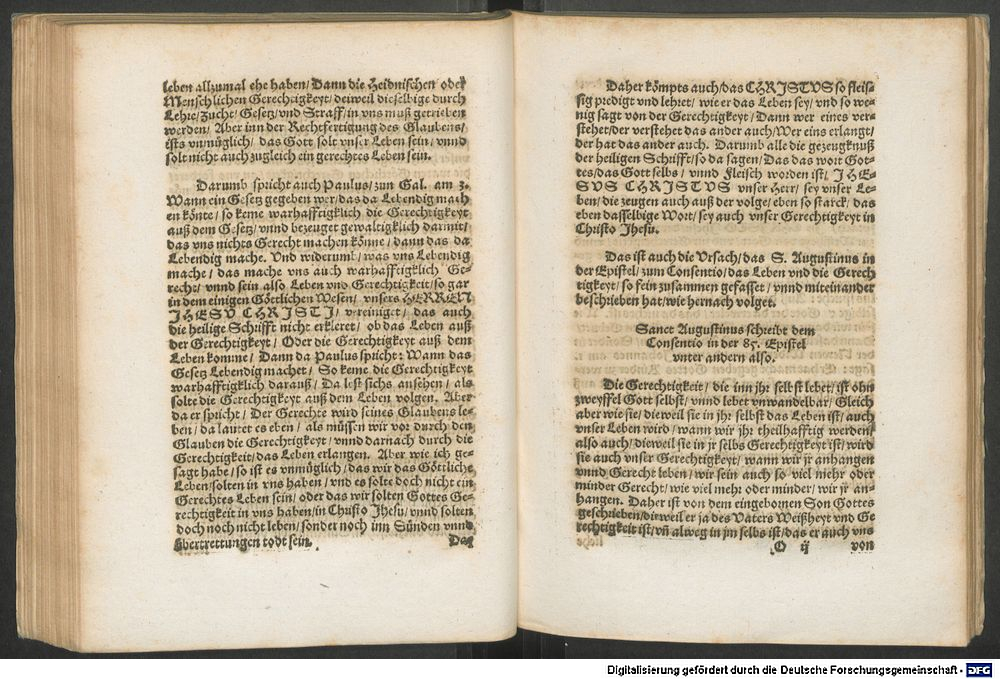 leben allzumal ehe haben/ Dann die Heidnischen oder
Menschlichen Gerechtigkeyt/ deiweil dieselbige durch
Lehre/ Zucht/ Gesetz/ vnd Straff/ in vns muß getrieben
werden/ Aber inn der Rechtfertigung des Glaubens/
ists vnmüglich/ das Gott solt vnser Leben sein/ vnnd
solt nicht auch zugleich ein gerechtes Leben sein.
Darumb spricht auch Paulus/ zun Gal. am 3.
Wann ein Gesetz gegeben wer/ das da Lebendig mach
en könte/ so keme warhafftigklich die Gerechtigkeyt
auß dem Gesetz/ vnnd bezeuget gewaltigklich darmit/
das vns nichts Gerecht machen könne/ dann das da
Lebendig mache. Vnd widerumb/ was vns Lebendig
mache/ das mache vns auch warhafftigklich Ge-
recht/ vnnd sein also Leben vnd Gerechtigkeit/ so gar
in dem einigen Göttlichen Wesen/ vnsers HERREN
IHESV CHRISTI/ vereiniget/ das auch
die heilige Schrifft nicht erkleret/ ob das Leben auß
der Gerechtigkeyt/ Oder die Gerechtigkeyt auß dem
Leben komme/ Dann da Paulus spricht: Wann das
Gesetz Lebendig machet/ So keme die Gerechtigkeyt
warhafftigklich darauß/ Da lest sichs ansehen/ als
solte die Gerechtigkeyt auß dem Leben volgen. Aber
da er spricht/ Der Gerechte wird seines Glaubens le-
ben/ da lautet es eben/ als müssen wir vor durch den
Glauben die Gerechtigkeyt/ vnnd darnach durch die
Gerechtigkeit/ das Leben erlangen. Aber wie ich ge-
sagt habe/ so ist es vnmüglich/ das wir das Göttliche
Leben/ solten in vns haben/ vnd es solte doch nicht ein
Gerechtes Leben sein/ oder das wir solten Gottes Ge-
rechtigkeit in vns haben/ in Christo Ihesu/ vnnd solten
doch noch nicht leben/ sonder noch inn Sünden vnnd
übertrettungen todt sein.
Da-
Daher kömpts auch/ das CHRISTVS so fleis-
sig predigt vnd lehret/ wie er das Leben sey/ vnd so we-
nig sagt von der Gerechtigkeyt/ Dann wer eines ver-
stehet/ der verstehet das ander auch/ Wer eins erlangt/
der hat das ander auch. Darumb alle die gezeugknuß
der heiligen Schrifft/ so da sagen/ Das das wort Got-
tes/ das Gott selbs/ vnnd Fleisch worden ist/ IHE-
SVS CHRISTVS vnser Herr/ sey vnser Le-
ben/ die zeugen auch auß der volge/ eben so starck/ das
eben dasselbige Wort/ sey auch vnser Gerechtigkeyt in
Christo Ihesu.
Das ist auch die Vrsach/ das S. Augustinus in
der Epistel/ zum Consentio/ das Leben vnd die Gerech
tigkeyt/ so fein zusammen gefasset/ vnnd miteinander
beschrieben hat/ wie hernach volget.
Sanct Augustinus schreibt dem
Consentio in der 85. Epistel
vnter andern also.
Die Gerechtigkeit/ die inn jhr selbst lebet/ ist ohn
zweyffel Gott selbst/ vnnd lebet vnwandelbar/ Gleich
aber wie sie/ dieweil sie in jhr selbst das Leben ist/ auch
vnser Leben wird/ wann wir jhr theilhafftig werden/
also auch/ dieweil sie in jr selbs Gerechtigkeyt ist/ wird
sie auch vnser Gerechtigkeyt/ wann wir jr anhangen
vnnd Gerecht leben/ wir sein auch so viel mehr oder
minder Gerecht/ wie viel mehr oder minder/ wir jr an-
hangen. Daher ist von dem eingebornen Son Gottes
geschrieben/ dieweil er ja des Vaters Weißheyt vnd Ge
rechtigkeit ist/ vñ alweg in jm selbs ist/ das er auch vns
O ij von
Digitalisierung gefördert durch die Deutsche Forschungsgemeinschaft - DFG